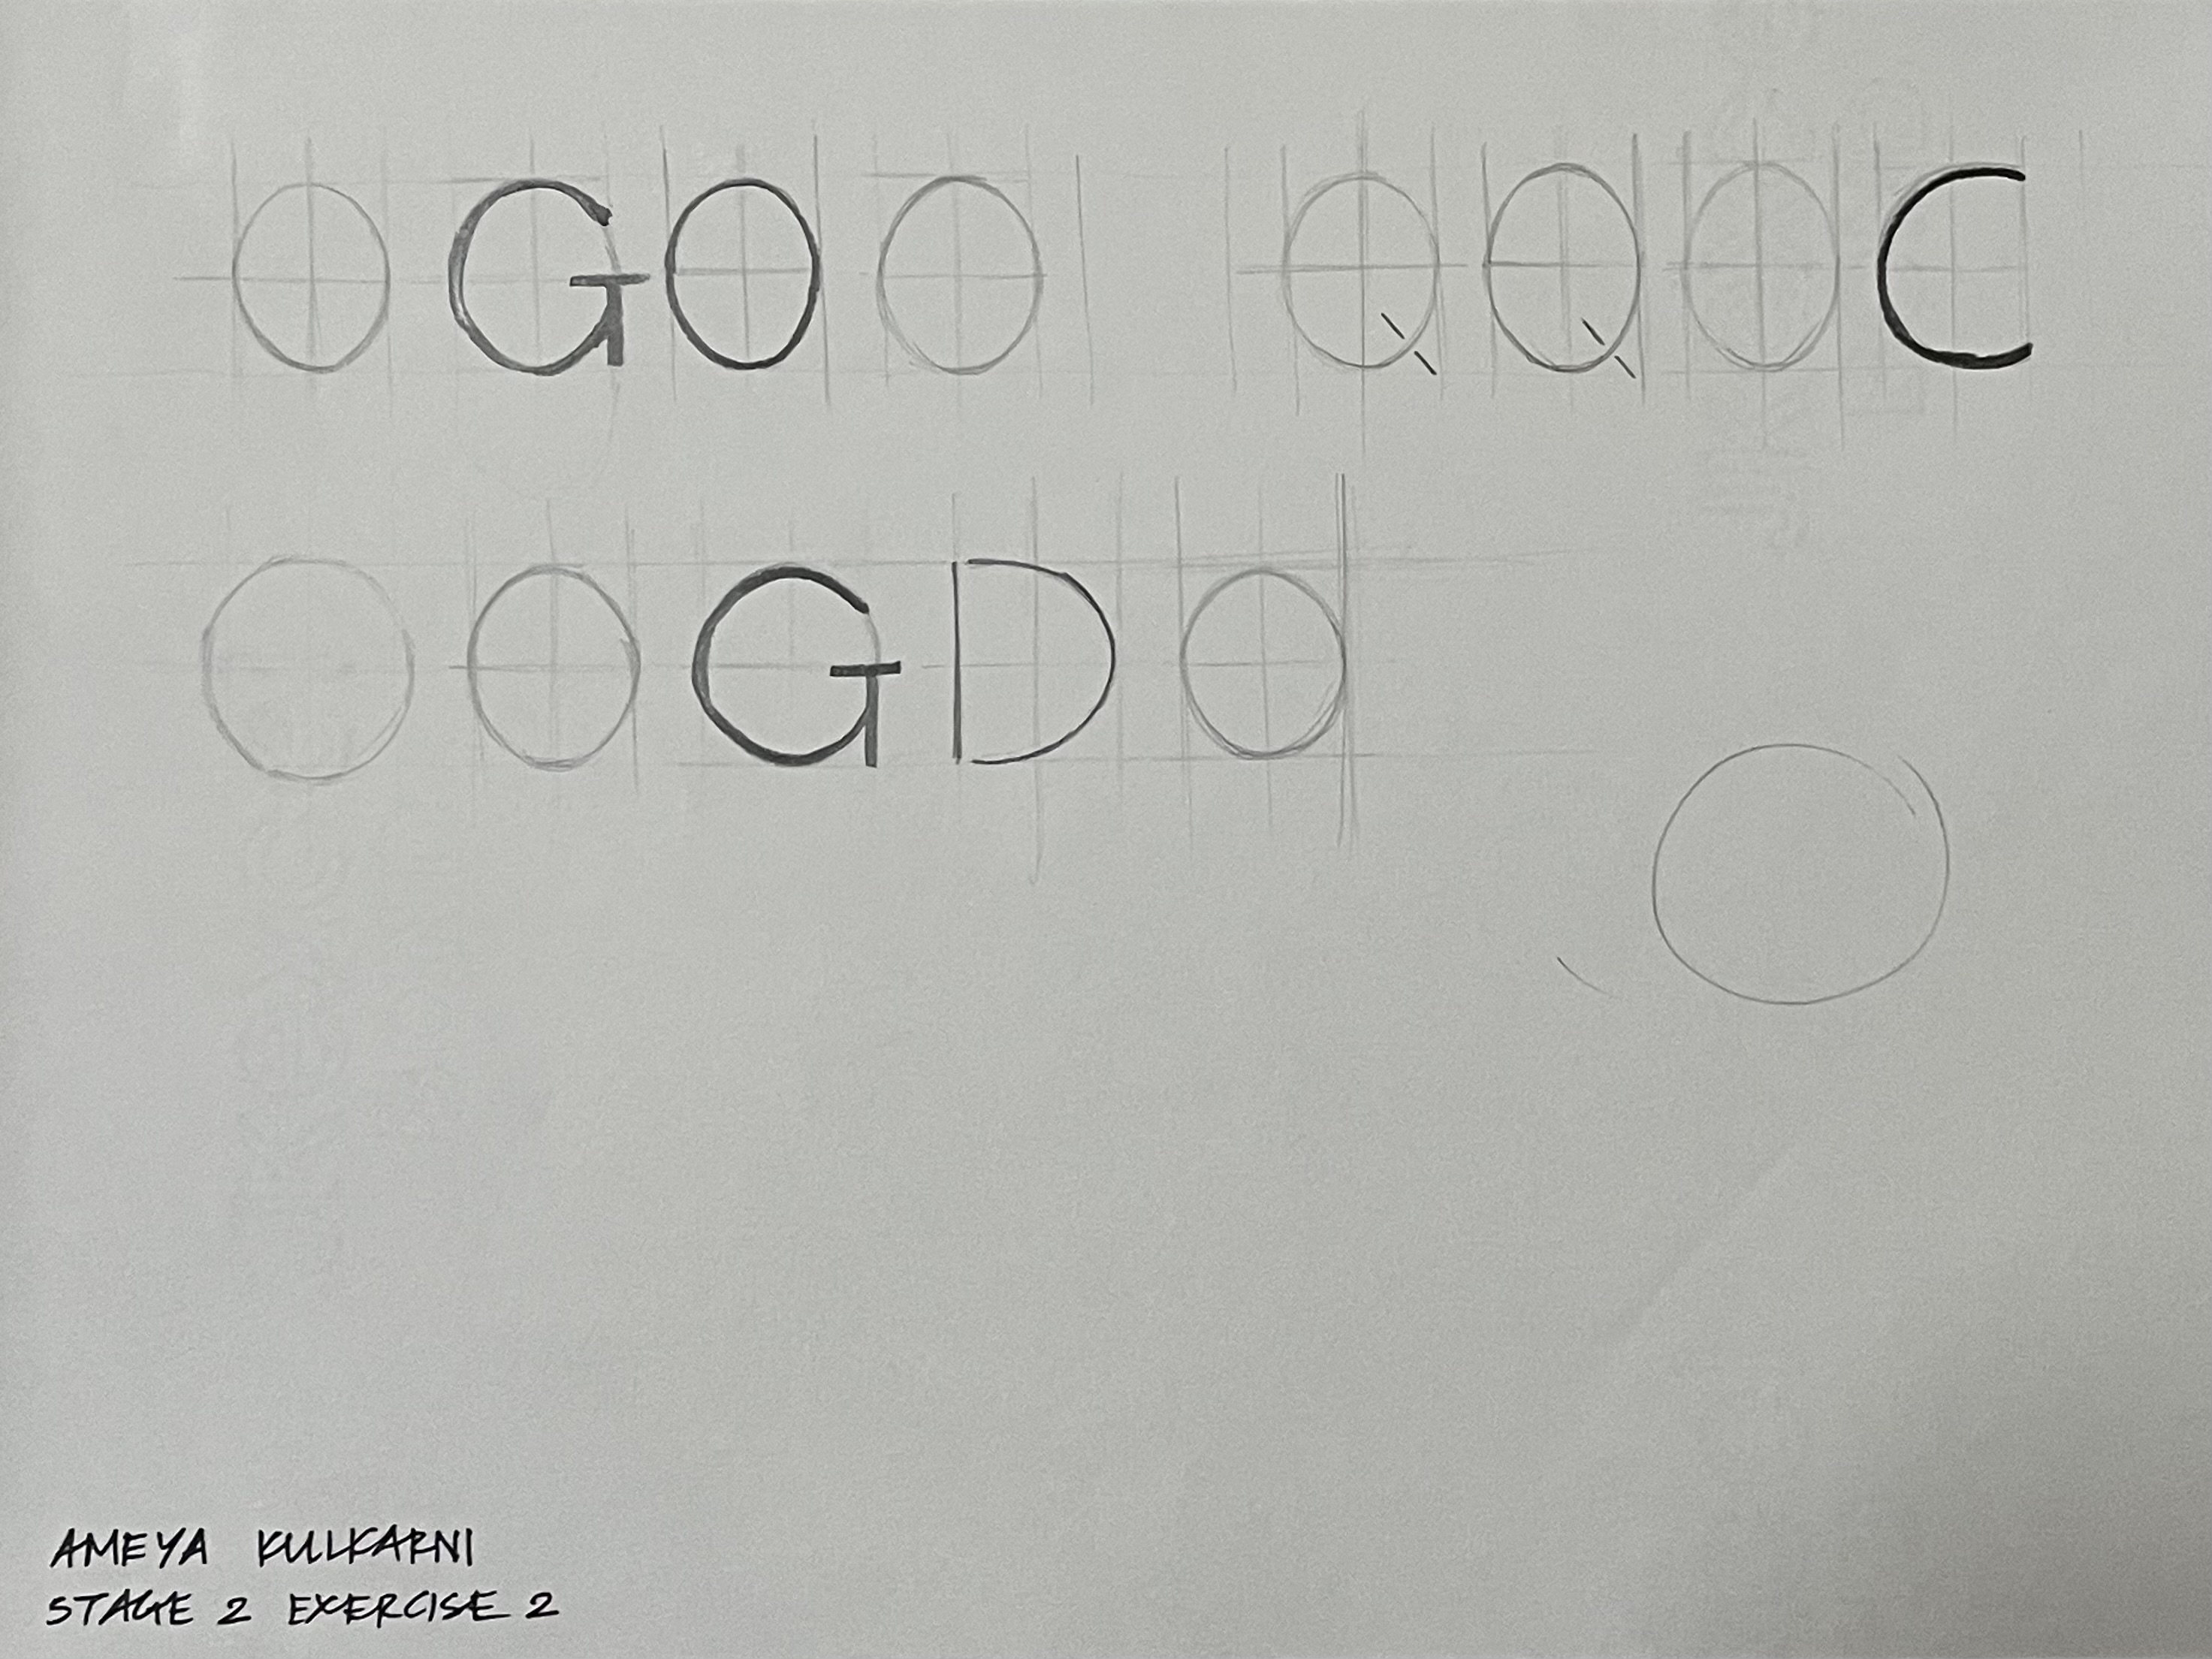 O G O O Q Q O C
O O G D O
AMEYA KULKARNI
STAGE 2 EXERCISE 2